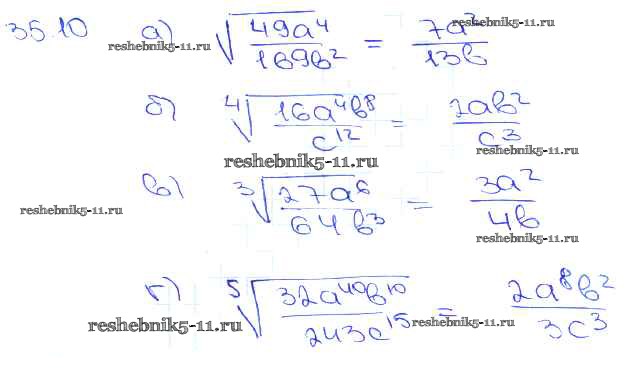 35.10 а) √(49a⁴/169b²) = 7a²/13b
reshebnik5-11.ru reshebnik5-11.ru
б) ⁴√(16a⁴b⁸/c¹²) = 2ab²/c³
reshebnik5-11.ru reshebnik5-11.ru
в) ³√(27a⁶/64b³) = 3a²/4b
reshebnik5-11.ru reshebnik5-11.ru
г) ⁵√(32a⁴⁰b¹⁰/243c¹⁵) = 2a⁸b²/3c³
reshebnik5-11.ru reshebnik5-11.ru